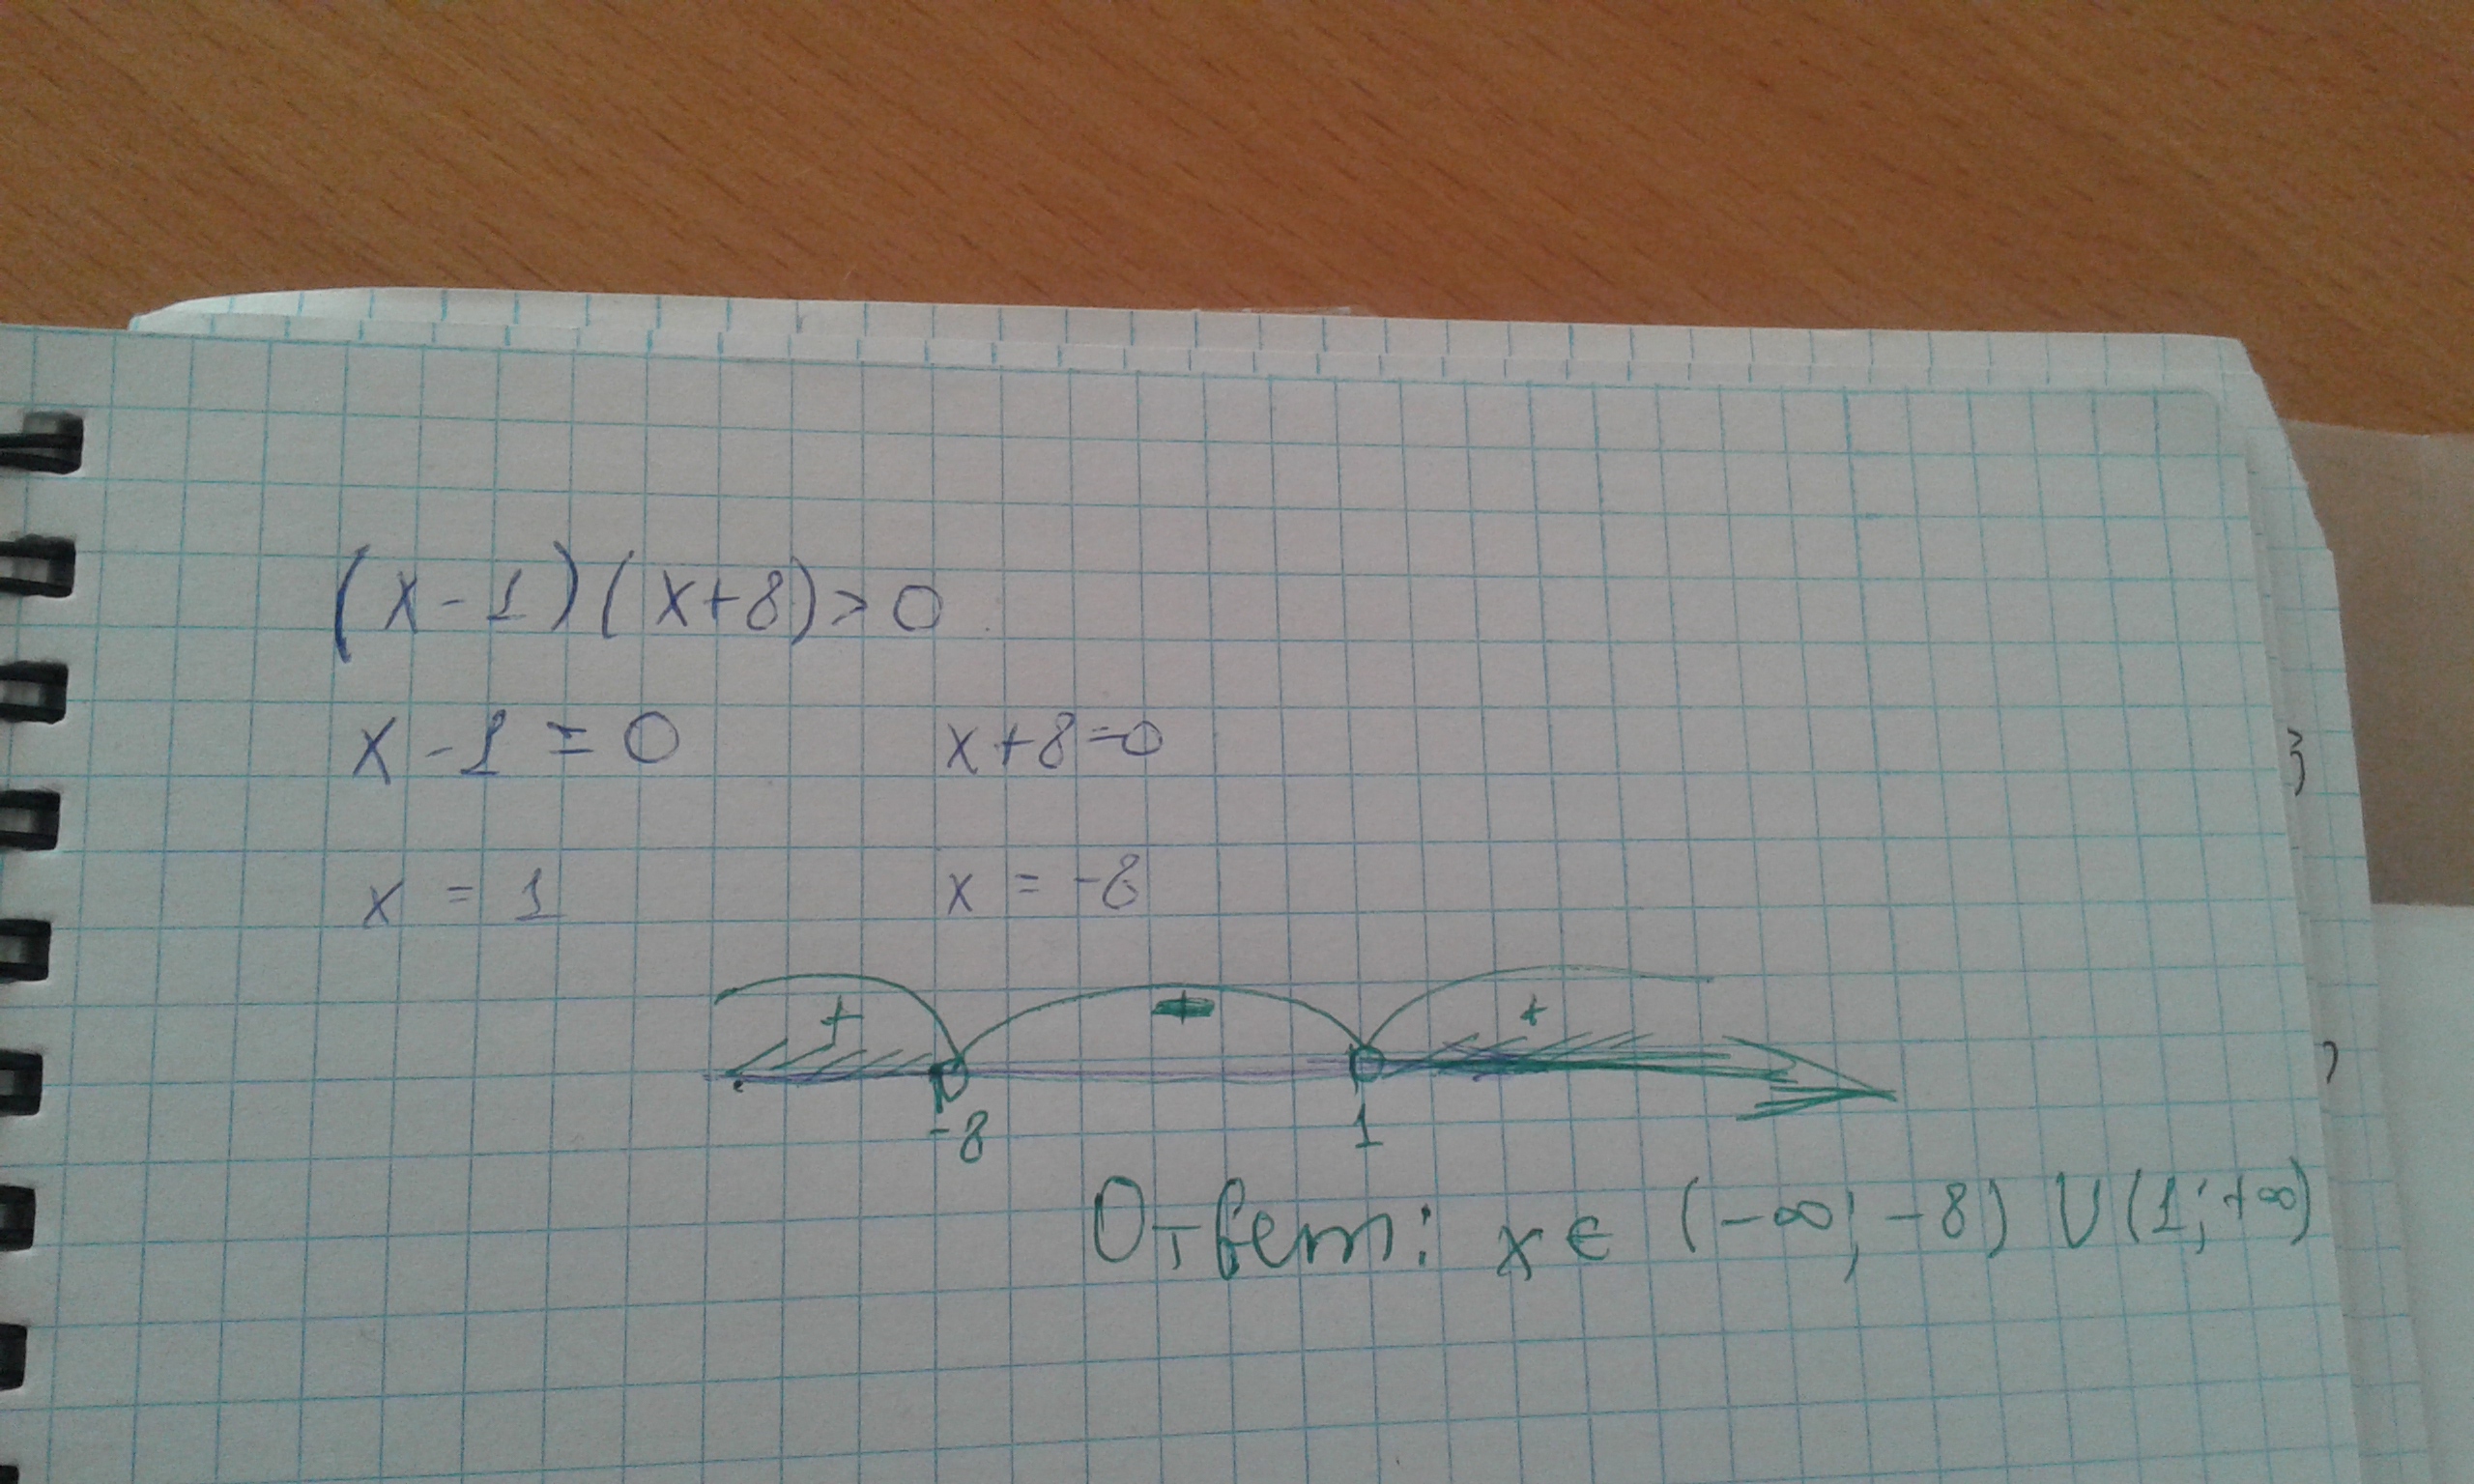 (x-1)(x+8)>0
x-1=0 x+8=0
x = 1 x = -8
+ - +
-8 1
Ответ: x∈ (-∞; -8) U (1; +∞)